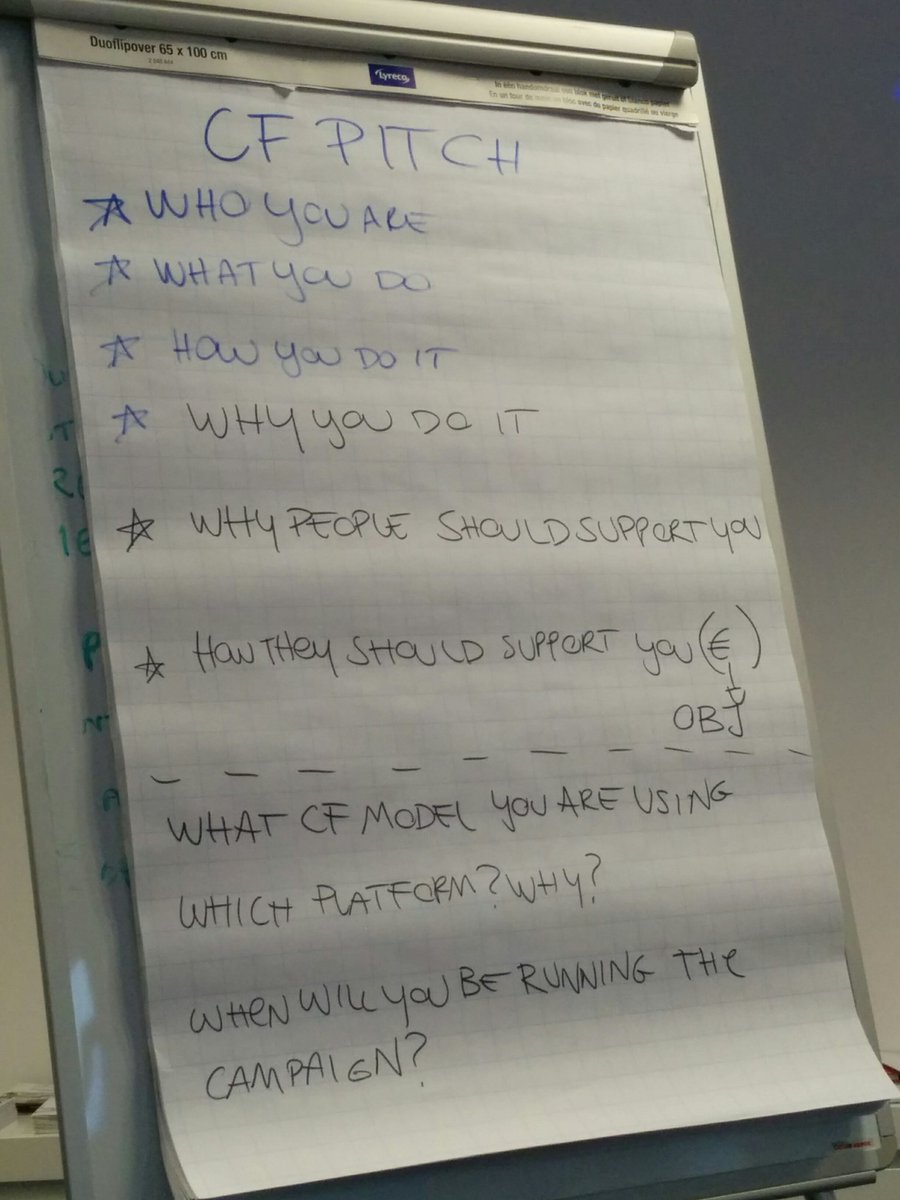 Duoflipover 65 x 100 cm
Lyreco
En un tour de main, un bloc avec du papier quadrillé ou vierge
CF PITCH
WHO YOU ARE
WHAT YOU DO
HOW YOU DO IT
WHY YOU DO IT
WHY PEOPLE SHOULD SUPPORT YOU
HOW THEY SHOULD SUPPORT YOU (€)
OBJ
WHAT CF MODEL YOU ARE USING
WHICH PLATFORM? WHY?
WHEN WILL YOU BE RUNNING THE
CAMPAIGN?